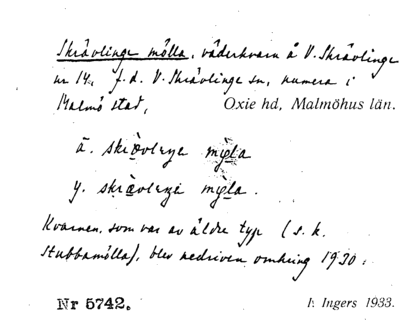 Skrävlinge mölla, väderkvarn å V. Skrävlinge
nr 14, f.d. V. Skrävlinge sn, numera i
Malmö stad, Oxie hd, Malmöhus län.
ä.
y.
Kvarnen, som var av äldre typ (s.k.
stubbamölla), blev nedriven omkring 1930.
Nr 5742. I. Ingers 1933.